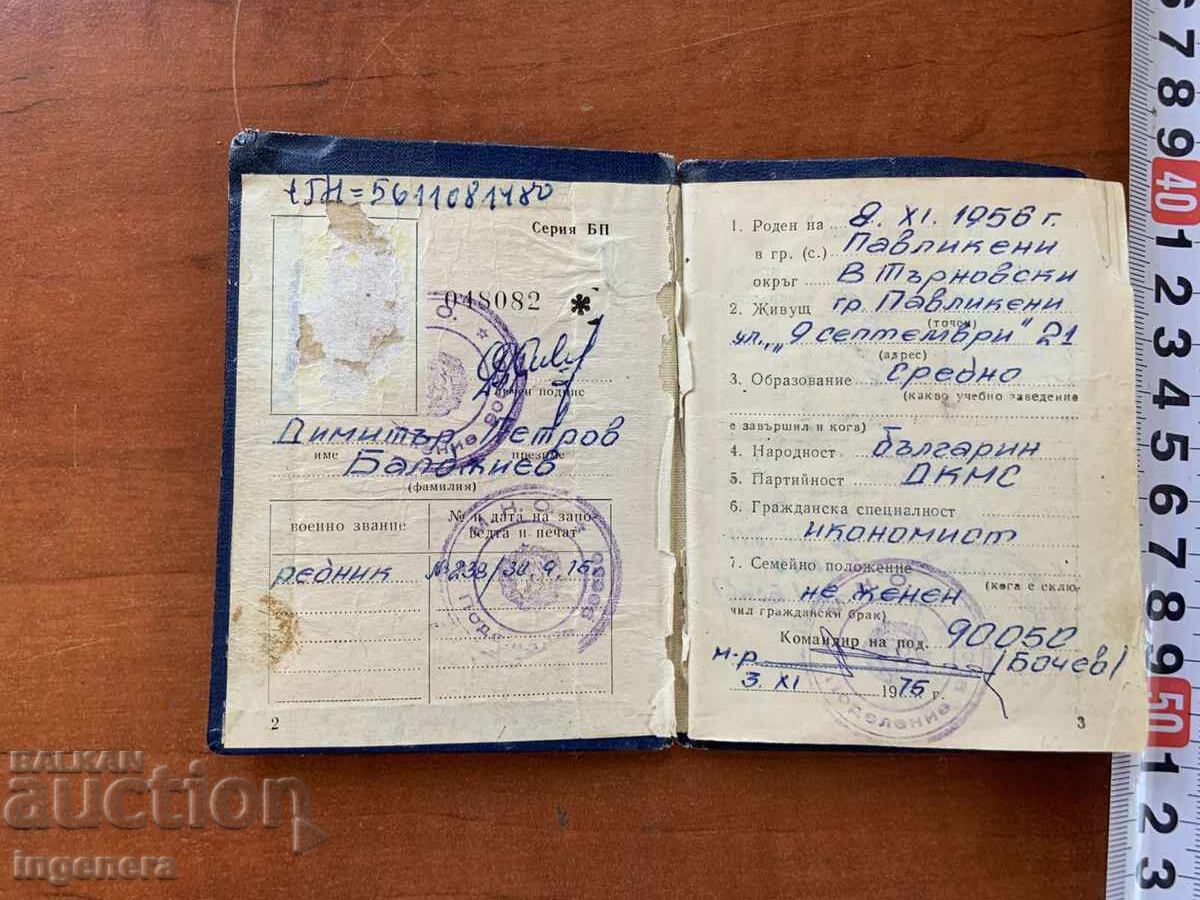 ЕГН=5611081480
Серия БП
048082 *
личен подпис
Димитър Петров
име презиме
Баложиев
(фамилия)
ВОЕННО ЗВАНИЕ
№ и дата на запо-
ведта и печат
редник
№ 239/30.9.75
2
1. Роден на 8. XI. 1956 г.
в гр. (с.) Павликени
окръг В Търновски
2. Живущ гр. Павликени
(точен
ул. „9 септември" 21
(адрес)
3. Образование средно
(какво учебно заведение
е завършил и кога)
4. Народност българин
5. Партийност ДКМС
6. Гражданска специалност
икономист
7. Семейно положение
(кога е склю-
не женен
чил граждански брак)
Командир на под. 90050
м-р (Бочев)
3. XI 1975 г.
3
6 7 8 9 40 1 2 3 4 5 6 7 8 9 50 1 2 3
BALKAN
auction
ingenera